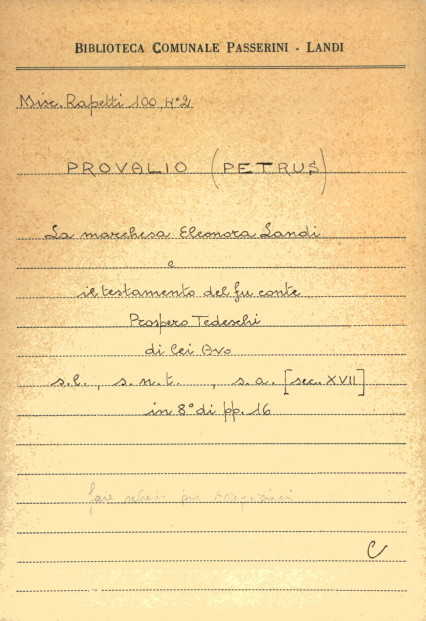 BIBLIOTECA COMUNALE PASSERINI - LANDI
Misc. Rapetti 100, N°2
PROVALIO (PETRUS)
La marchesa Eleonora Landi
e
il testamento del fu conte
Prospero Tedeschi
di lei Avo
s.l., s.n.t., s.a. [sec. XVII]
in 8° di pp. 16
fare schede per
C